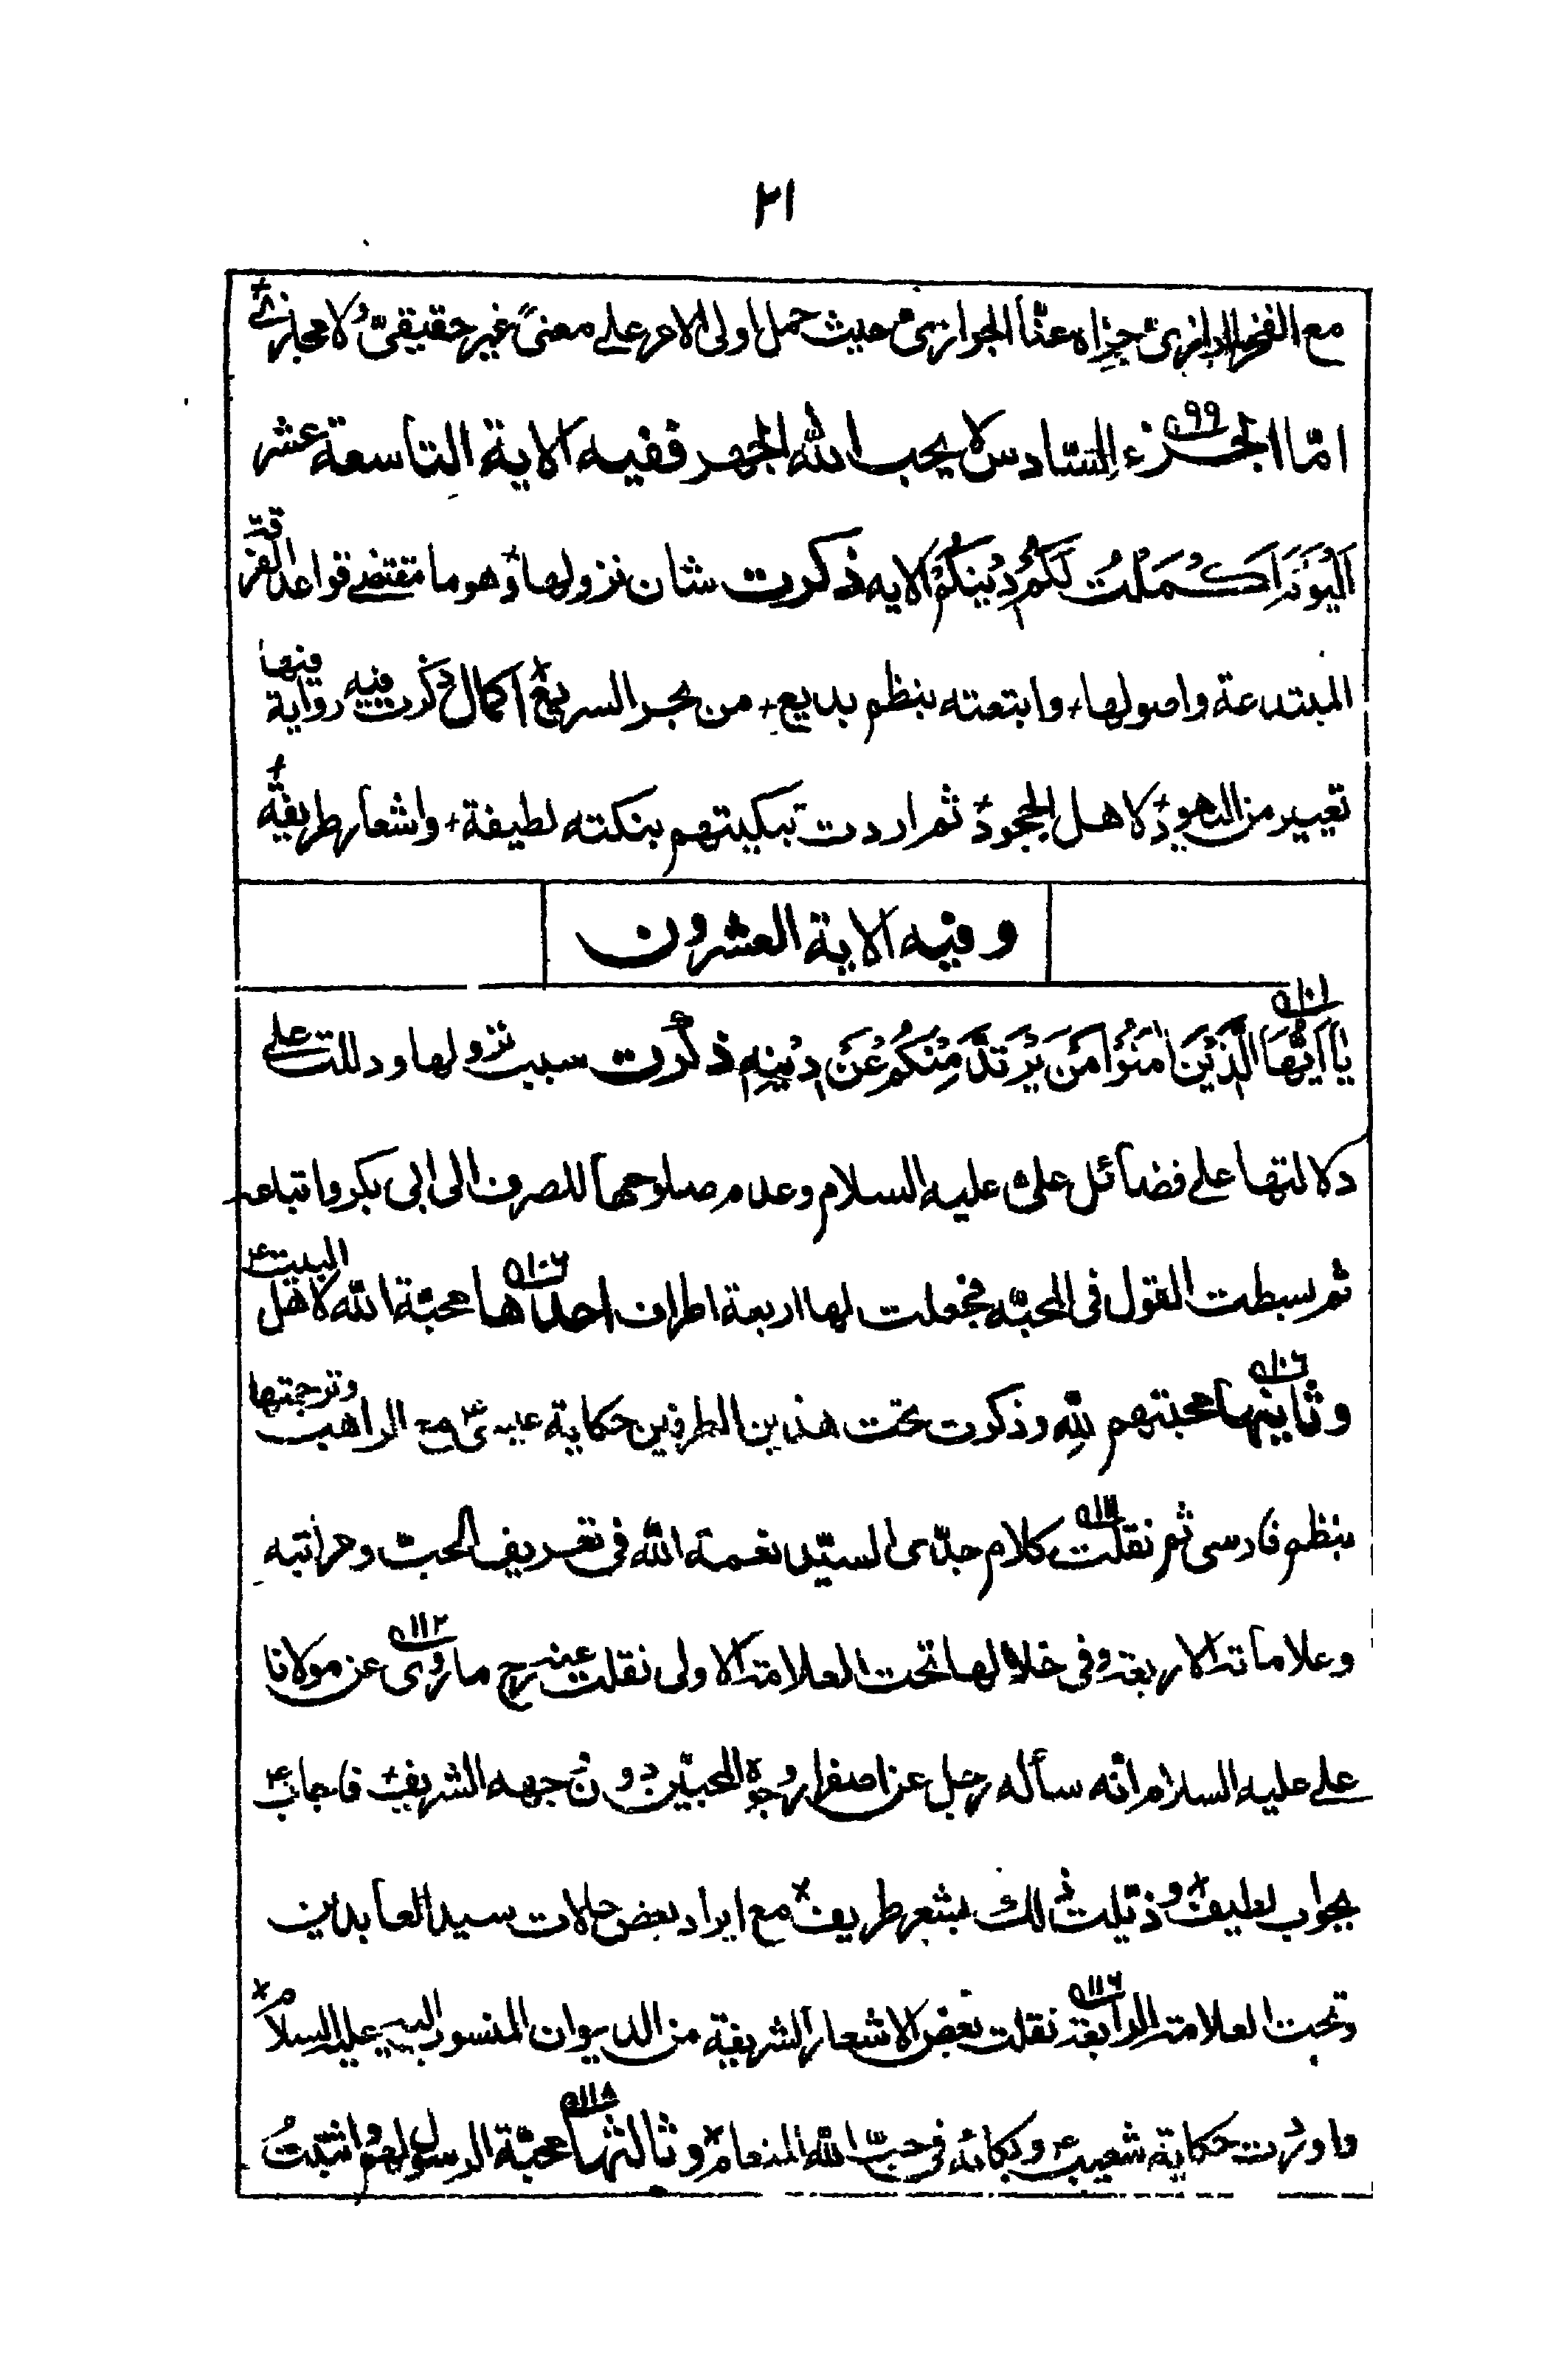 ٢١
مع الفخر الرازي جزاه عنّا الجوازي حيث حمل اولى الامر على معنىً غير حقيقيّ ولا مجازي
امّا الجزء السّادس لا يحب الله الجهر ففيه الاية التاسعة عشر
٩٩
اَلْيَوْمَ اَكْمَلْتُ لَكُمْ دِيْنَكُمْ الايه ذكرت شان نزولها وهو ما مقتضى قواعد الفرقة
المبتدعة واصولها وابتعته بنظم بديع من بحر السريع اكمال ذكرت فيه رواية فيها
تعيير من اليهود لاهل الجحود ثم اردت تبكيتهم بنكته لطيفة واشعار طريفة
وفيه الاية العشرون
١٠١
يَا اَيُّهَا الَّذِيْنَ اٰمَنُوْا مَنْ يَرْتَدَّ مِنْكُمْ عَنْ دِيْنِهِ ذكرت سبب نزولها ودللت على
دلالتها على فضائل علي عليه السلام وعدم صلوحها للصرف الى ابى بكر واتباعه
ثم بسطت القول فى المحبّه فجعلت لها اربعة اطراف احداها محبّة الله لاهل البيت ع
١٠٦
وثانيها محبتهم لله وذكرت تحت هذين الطرفين حكاية عيسى ع مع الراهب وترجمتها
١٠٦
بنظم فارسى ثم نقلت كلام جدّى السيّد نعمة الله فى تعريف الحبّ ومراتبه
وعلاماته الاربعة وفى خلالها تحت العلامة الاولى نقلت عنه رح ما روى عن مولانا
١١٢
على عليه السلام انّه سأله رجل عن اصفرار وجوه المحبّين دون وجهه الشريف فاجاب ع
بجواب لطيف وذيّلت ذلك بشعر طريف مع ايراد بعض حالات سيد العابدين
وتحت العلامة الرابعة نقلت بعض الاشعار الشريفة من الديوان المنسوب اليه عليه السلام
١١٦
واوردت حكاية شعيب ع وبكائه فى حبّ الله المنعام وثالثها محبّة الرسول لهم واثبتُ
١١٨